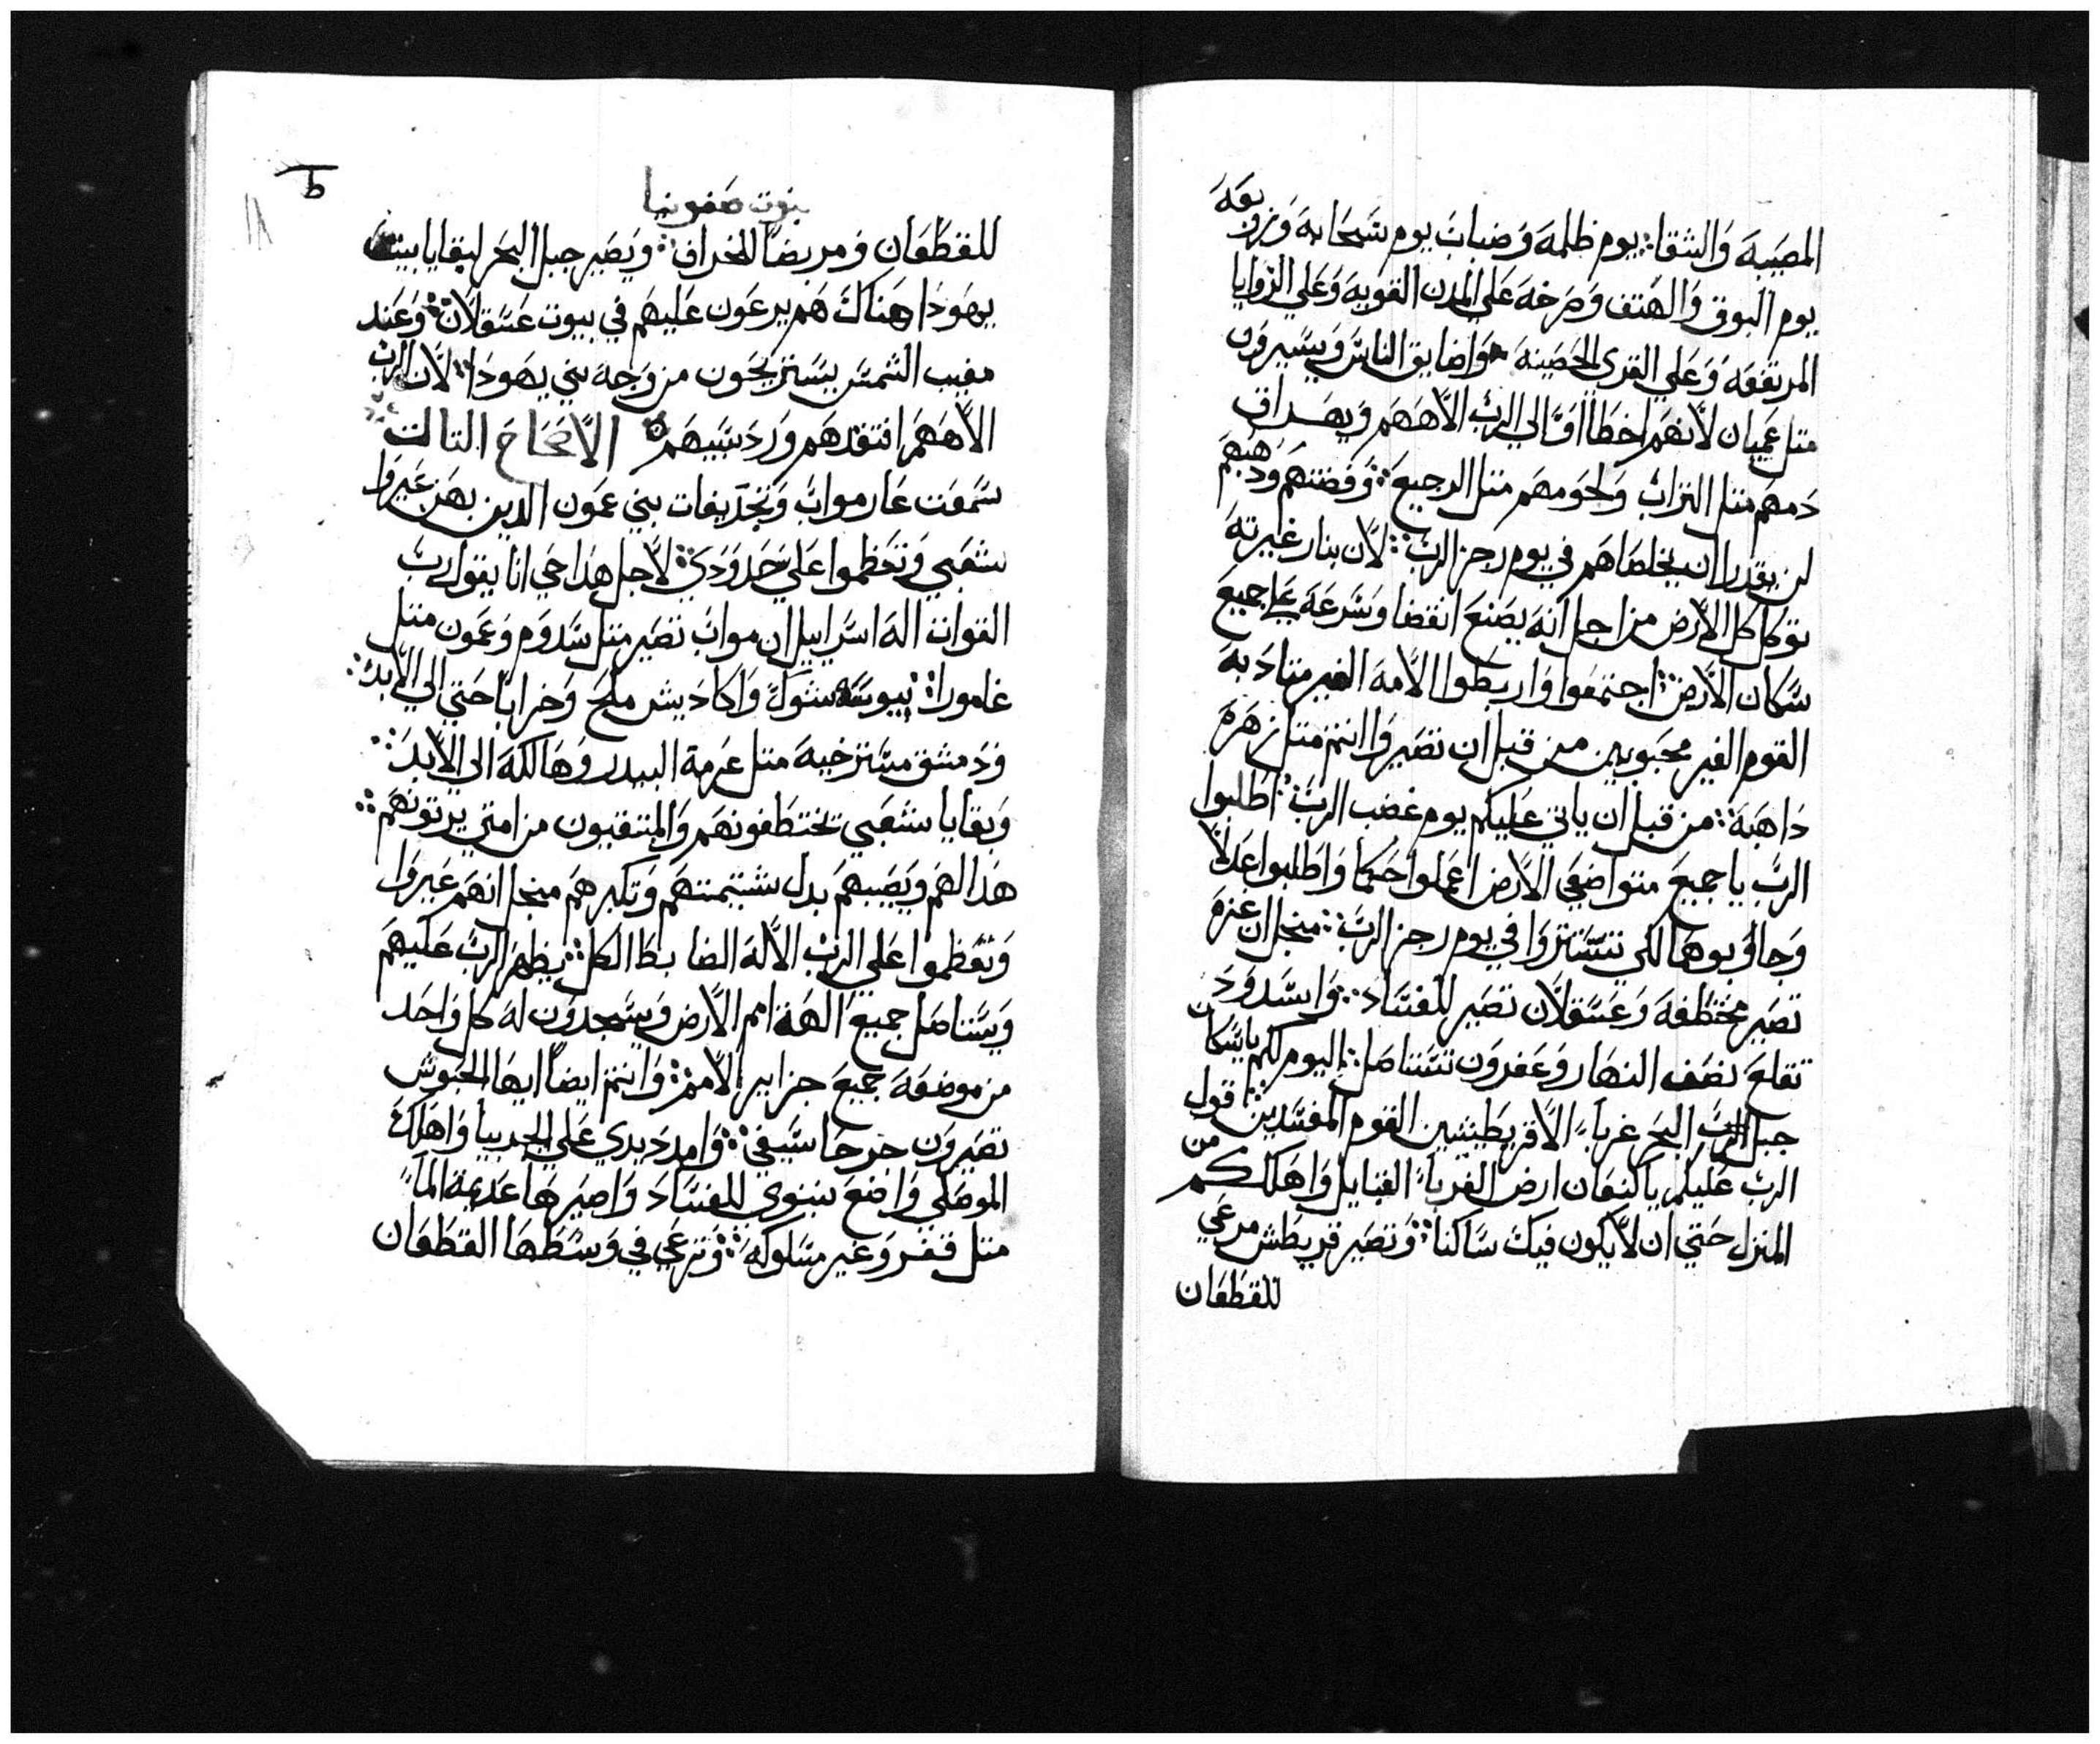 المصيبه والشقا: يوم ظلمه وضباب يوم سحابه وزوبعه
يوم البوق والهتف وصرخه علي المدن القويه وعلي الزوايا
المرتفعه وعلي القري الحصينه واضايق الناس ويسيرون
متل عميان لانهم اخطااوا الي الرب الاههم ويهراق
دمهم متل التراب ولحومهم متل الرجيع: وفضتهم ودهبهم
لن يقدرا ان يخلصاهم في يوم رجز الرب: لان بنار غيرته
توكل كل الارض من اجل انه يصنع انقضا وسرعه علي جميع
سكان الارض: اجتمعوا واربطوا الامه الغير متادبه
القوم الغير محبوبين من قبل ان تصيروا انتم متل زهره
داهبه: من قبل ان ياتي عليكم يوم غضب الرب: اطلبوا
الرب يا جميع متواضعي الارض اعملوا حكما واطلبوا عدلا
وجاوبوها لكي تستتروا في يوم رجز الرب: منجل ان غزه
تصير مختطفه وعسقلان تصير للفساد: واسدود
تقلع نصف النهار وعقرون تستاصل: اليوم لكم ياسكان
جبل الرب البحر غربا الاقريطيشيين القوم المفسدين: قول
الرب عليكم ياكنعان ارض الغربا القبايل واهلككم من
المنزل حتي ان لا يكون فيك ساكنا: وتصير قريطش مرعي
للقطعان
نبوت صفونيا
للقطعان ومربضا للخراف: ويصير جبل البحر لبقايا بيت
يهودا هناك هم يرعون عليهم في بيوت عسقلان: وعند
مغيب الشمس يستريحون من وجه بني يهودا: لان الرب
الاههم افتقدهم ورد سبيهم الاصحاح التالت
سمعت عار مواب وتجديفات بني عمون الدين بهن عيروا
شعبي وتعظموا علي حدودي: لاجل هدا حي انا يقول رب
القوات اله اسراييل ان مواب تصير متل سدوم وعمون متل
غامورا: يبوسه شوك واكاديش ملح وخرابا حتي الي الابد:
ودمشق مسترخيه متل عرمة البيدر وهالكه الي الابد:
وبقايا شعبي تختطفونهم والمتبقيون من امتي يرتونهم:
هدا لهم ويصيبهم بدل شتيمتهم وتكبرهم منجل انهم عيروا
وتعظموا علي الرب الاله الضابط الكل: يظهر الرب عليهم
ويستاصل جميع الهة امم الارض ويسجدون له كل واحد
من موضعه جميع جزايير الامم: وانتم ايضا ايها الحبوش
تصيرون جرحا سيفي: وامدد يدي علي الجربيا واهلك
الموصلي واضع نينوي للفساد واصيرها عديمة الما
متل قفر وغير مسلوكه: وترعي في وسطها القطعان